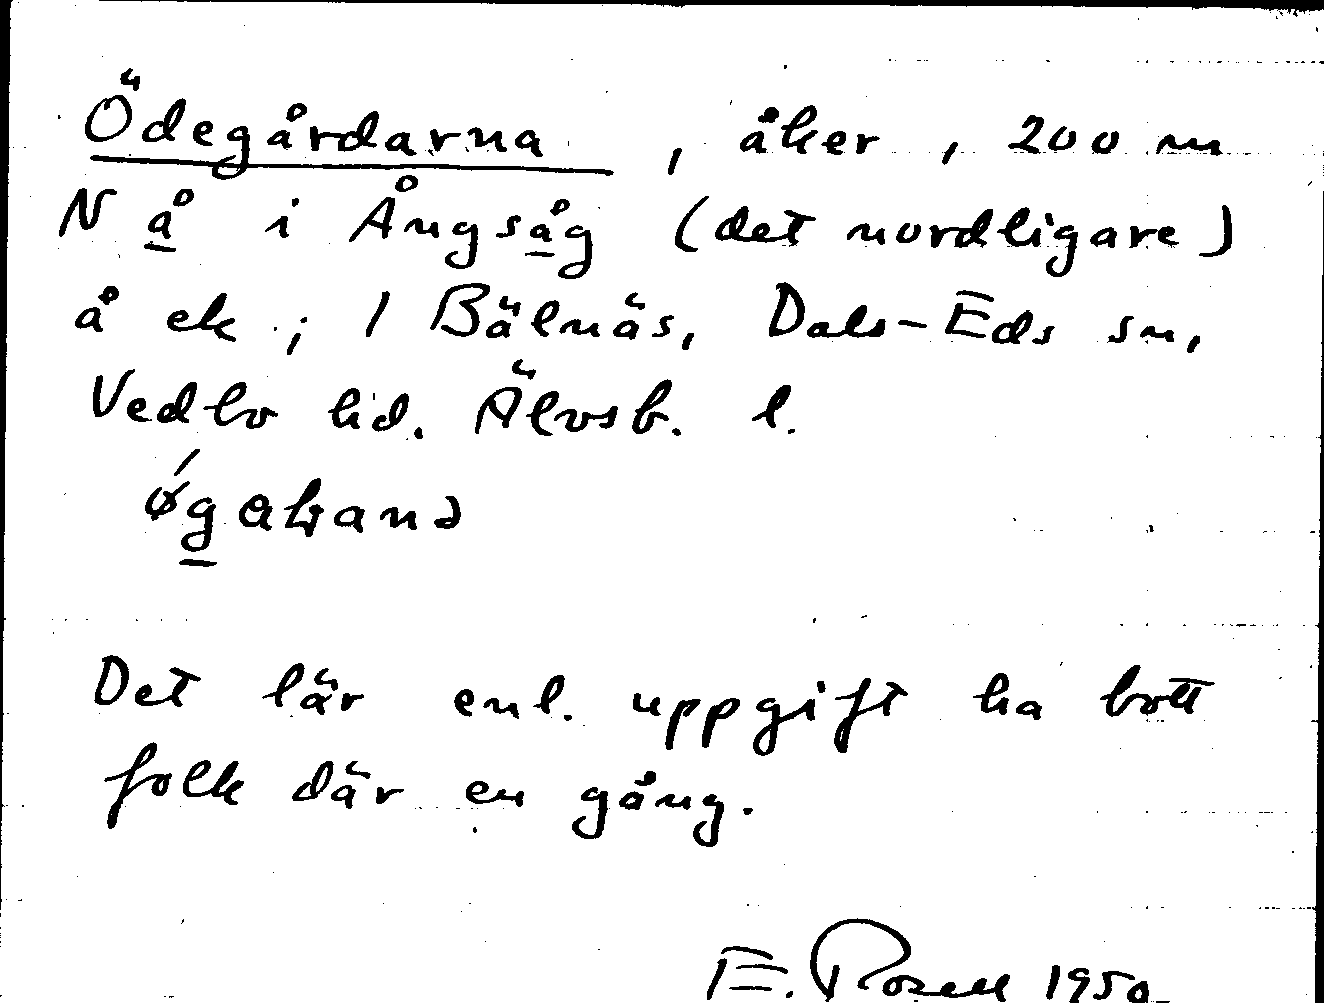 Ödegårdarna, åker, 200 m
N å i Ångsåg (det nordligare)
å ek; 1 Bälnäs, Dals-Eds sn,
Vedbo hd. Älvsb. l.
Det lär enl. uppgift ha bott
folk där en gång.
E. Rosell 1950